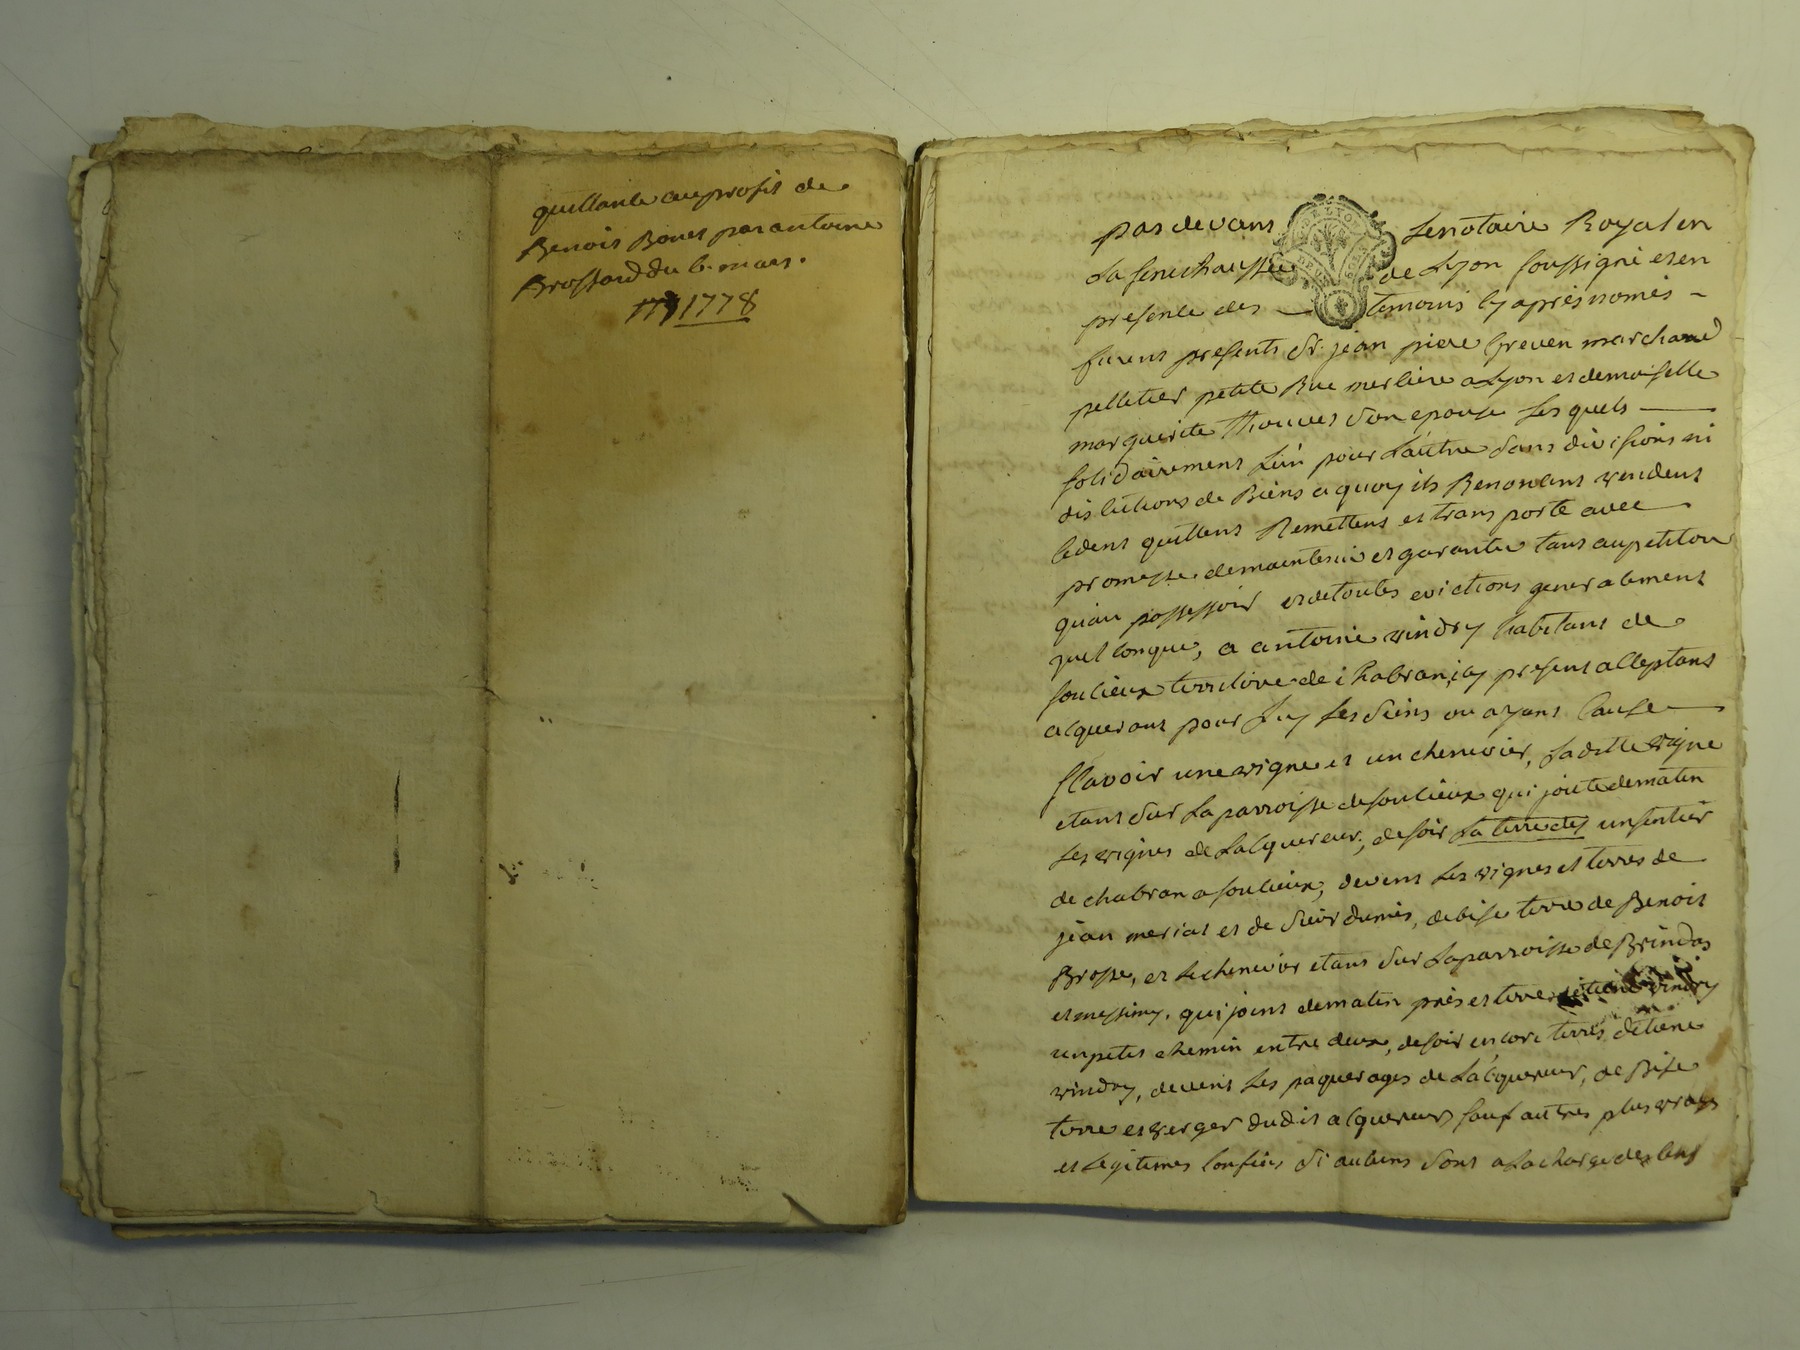 quittance au profit de
Benoit Bouet par antoine
Brossard du 6. mars.
1778
pardevant le notaire Royal en
la senechaussee de Lyon soussigné et en
presence des temoins cy après només
furent presents Sr. jean piere greven marchand
pelletier petite Rue merliere a Lyon et demoiselle
marguerite Thouves son epouse les quels
solidairement l'un pour l'autre sans divisions ni
discutions de Biens a quoy ils Renoncent vendent
cedent quittent Remettent et transporte avec
promesse de maintenir et garantir tant au petitoire
qu'au possessoir et de toutes evictions generalement
quelconque, a antoine vindry habitant de
soucieux territoire de chabran, icy present acceptant
acquerant pour luy les siens ou ayant cause
sçavoir une vigne et un chenevier, laditte vigne
etant sur la parroisse de soucieux qui joute de matin
les vignes de l'acquereur, de soir la terre des un sentier
de chabran a soucieux, de vent les vignes et terres de
jean meriat et de sieur dumes, de bise terre de Benoit
Brosse, et le chenevier etant sur la parroisse de Brindas
et messimy. qui joint de matin près et terre etiene vindry
un petit chemin entre deux, de soir encore terres d'etiene
vindry, de vent les paquerages de l'acquereur, de Bise
terre et verger dudit acquereur sauf autres plus vrays
et legitimes confins si aucuns sont a la charge des cens